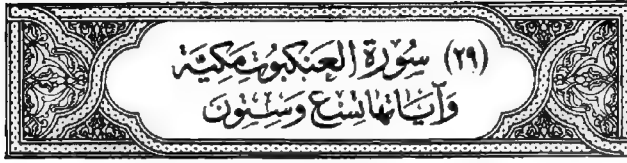 (٢٩) سُورَة العَنكبُوتِ مَكيَّة
وَآيَاتهَا تِسْع وَسِتّونَ